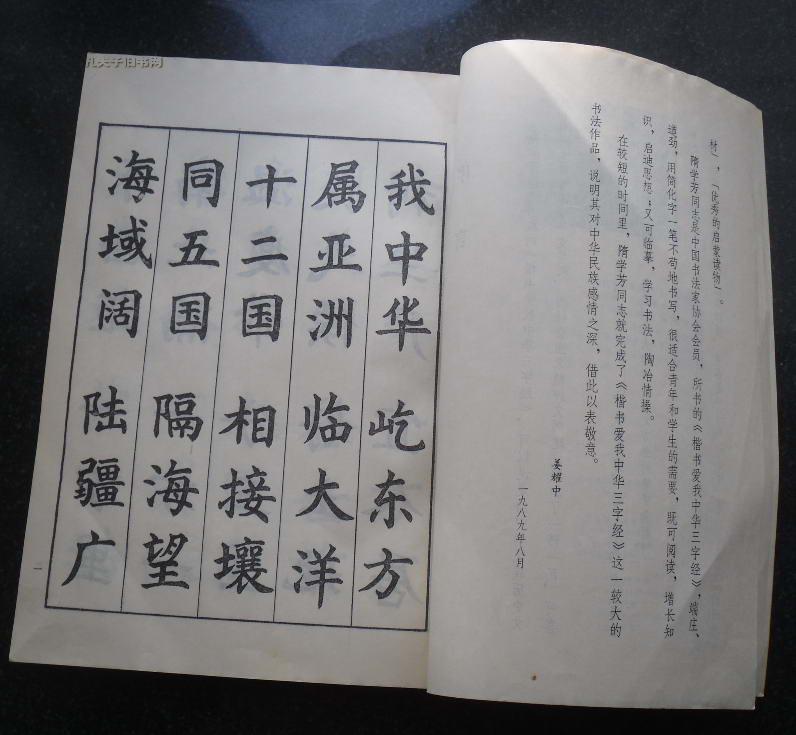 材），「优秀的启蒙读物」。
隋学芳同志是中国书法家协会会员，所书的《楷书爱我中华三字经》，端庄、
遒劲，用简化字一笔不苟地书写，很适合青年和学生的需要，既可阅读，增长知
识，启迪思想；又可临摹，学习书法，陶冶情操。
在较短的时间里，隋学芳同志就完成了《楷书爱我中华三字经》这一较大的
书法作品，说明其对中华民族感情之深，借此以表敬意。
姜耀中
一九八九年八月
我中华 屹东方
属亚洲 临大洋
十二国 相接壤
同五国 隔海望
海域阔 陆疆广
一
孔夫子旧书网